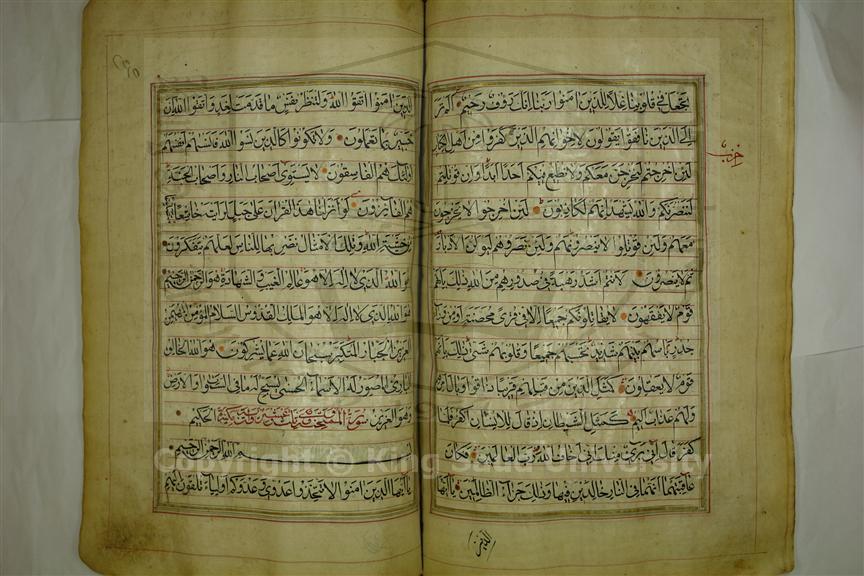 تجعل في قلوبنا غلا للذين امنوا ربنا انك رؤف رحيم الم تر
الى الذين نافقوا يقولون لاخوانهم الذين كفروا من اهل الكتاب
لئن اخرجتم لنخرجن معكم ولا نطيع فيكم احدا ابدا وان قوتلتم
لننصرنكم والله يشهد انهم لكاذبون لئن اخرجوا لا يخرجون
معهم ولئن قوتلوا لا ينصرونهم ولئن نصروهم ليولن الادبار
ثم لا ينصرون لانتم اشد رهبة في صدورهم من الله ذلك بانهم
قوم لا يفقهون لا يقاتلونكم جميعا الا في قرى محصنة او من وراء
جدر باسهم بينهم شديد تحسبهم جميعا وقلوبهم شتى ذلك بانهم
قوم لا يعقلون كمثل الذين من قبلهم قريبا ذاقوا وبال امرهم
ولهم عذاب اليم كمثل الشيطان اذ قال للانسان اكفر فلما
كفر قال اني بريء منك اني اخاف الله رب العالمين فكان
عاقبتهما انهما في النار خالدين فيها وذلك جزاء الظالمين يا ايها
الذين
حزب
الذين امنوا اتقوا الله ولتنظر نفس ما قدمت لغد واتقوا الله ان
خبير بما تعملون ولا تكونوا كالذين نسوا الله فانسيهم انفسهم
اولئك هم الفاسقون لا يستوي اصحاب النار واصحاب الجنة
هم الفائزون لو انزلنا هذا القران على جبل لرايته خاشعا
من خشية الله وتلك الامثال نضربها للناس لعلهم يتفكرون
هو الله الذي لا اله الا هو عالم الغيب والشهادة هو الرحمن الرحيم
هو الله الذي لا اله الا هو الملك القدوس السلام المؤمن المهيمن
العزيز الجبار المتكبر سبحان الله عما يشركون هو الله الخالق
الباري المصور له الاسماء الحسنى يسبح له ما في السموات والارض
وهو العزيز الحكيم
سورة الممتحنة
بسم الله الرحمن الرحيم
يا ايها الذين امنوا لا تتخذوا عدوي وعدوكم اولياء تلقون اليهم
Copyright © King Saud University